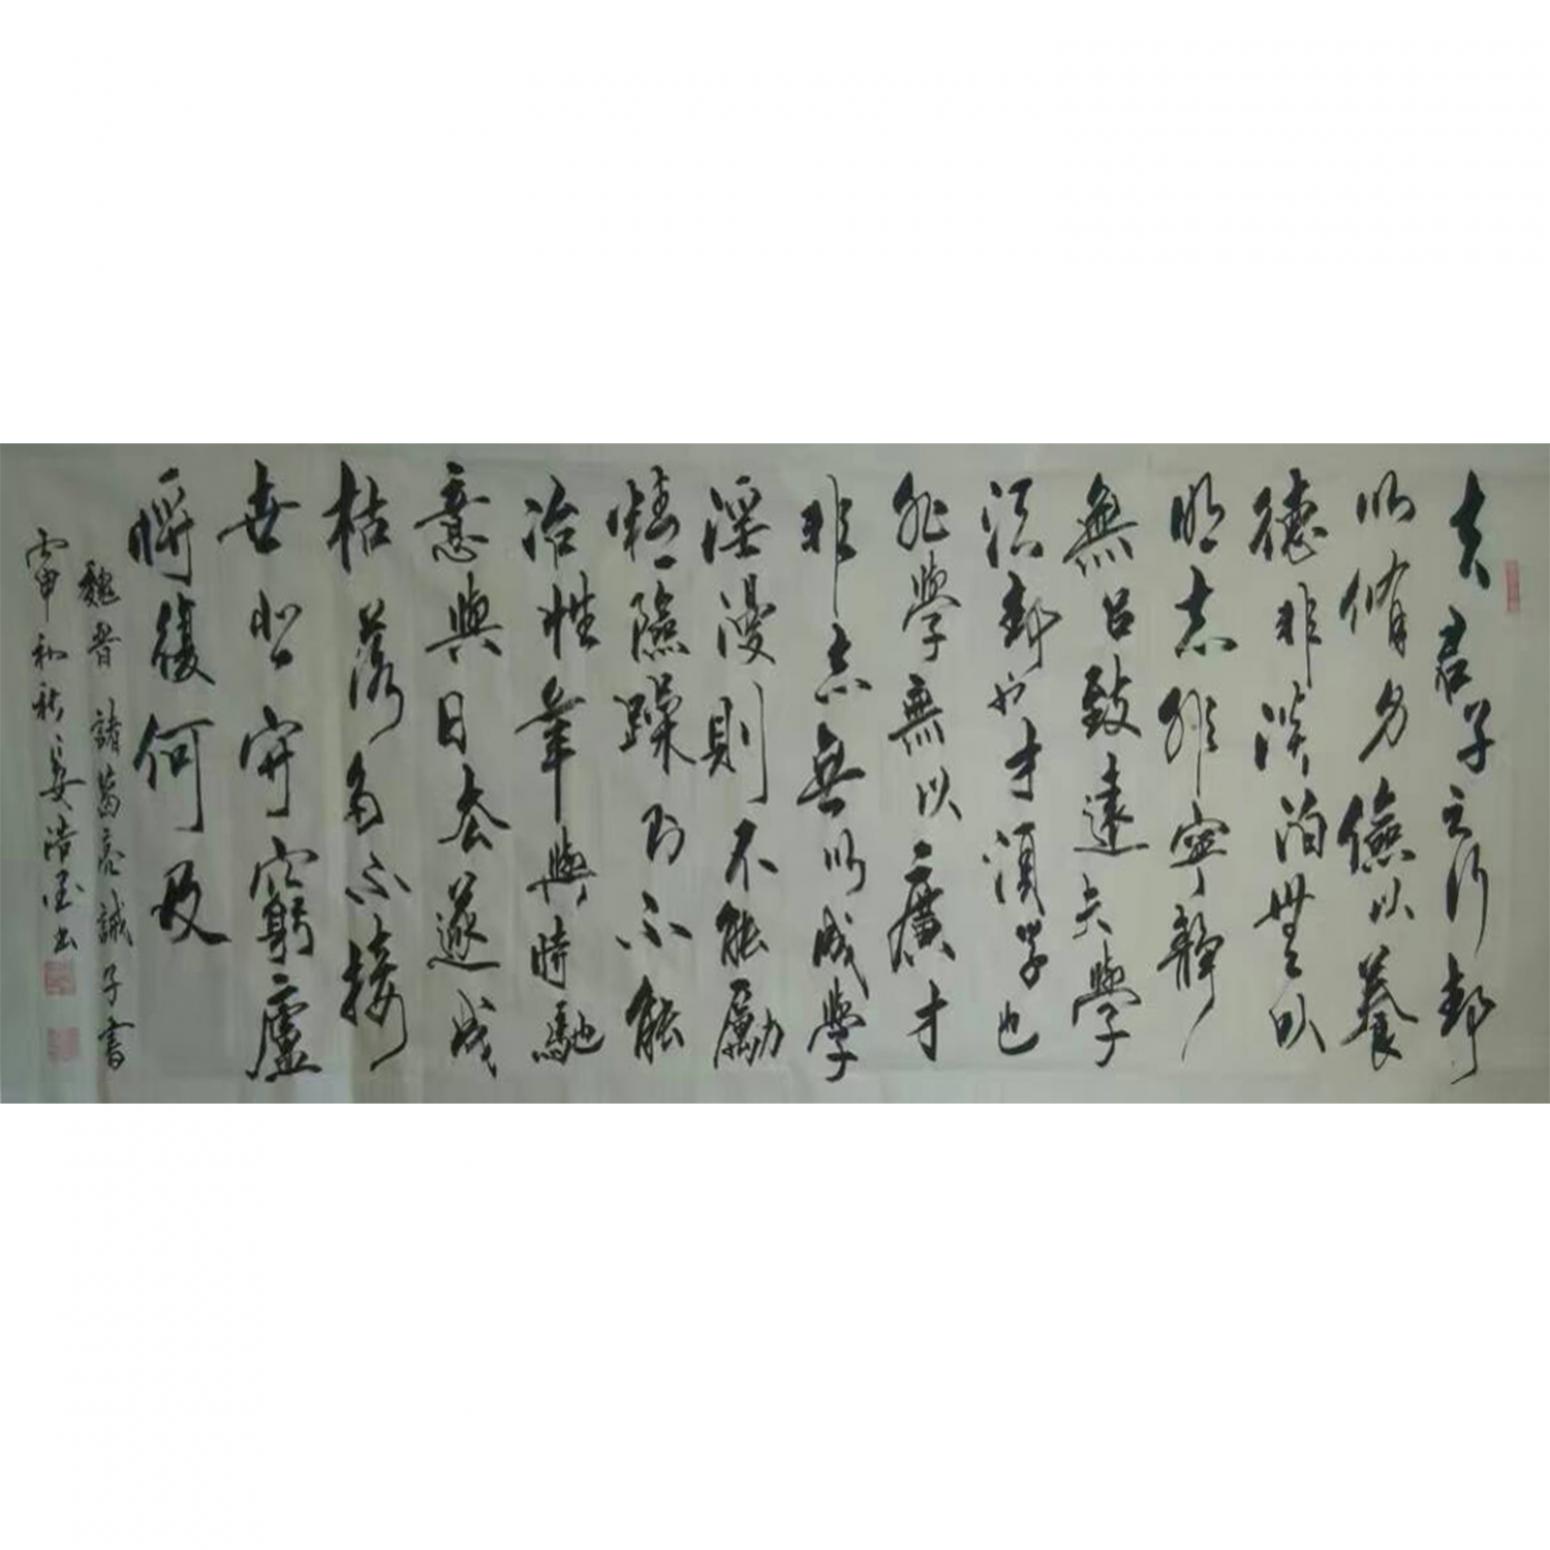 夫君子之行靜
以脩身儉以養
德非淡泊無以
明志非寧靜
無以致遠夫學
須靜也才須學也
非學無以廣才
非志無以成學
淫漫則不能勵
精險躁則不能
冶性年與時馳
意與日去遂成
枯落多不接
世悲守窮廬
將復何及
魏晉 諸葛亮誡子書
丙申初秋 浩書